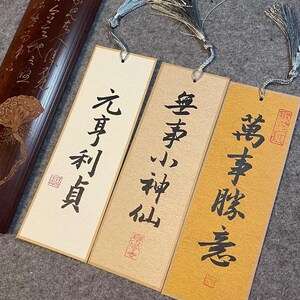 元亨利貞
無事小神仙
萬事勝意